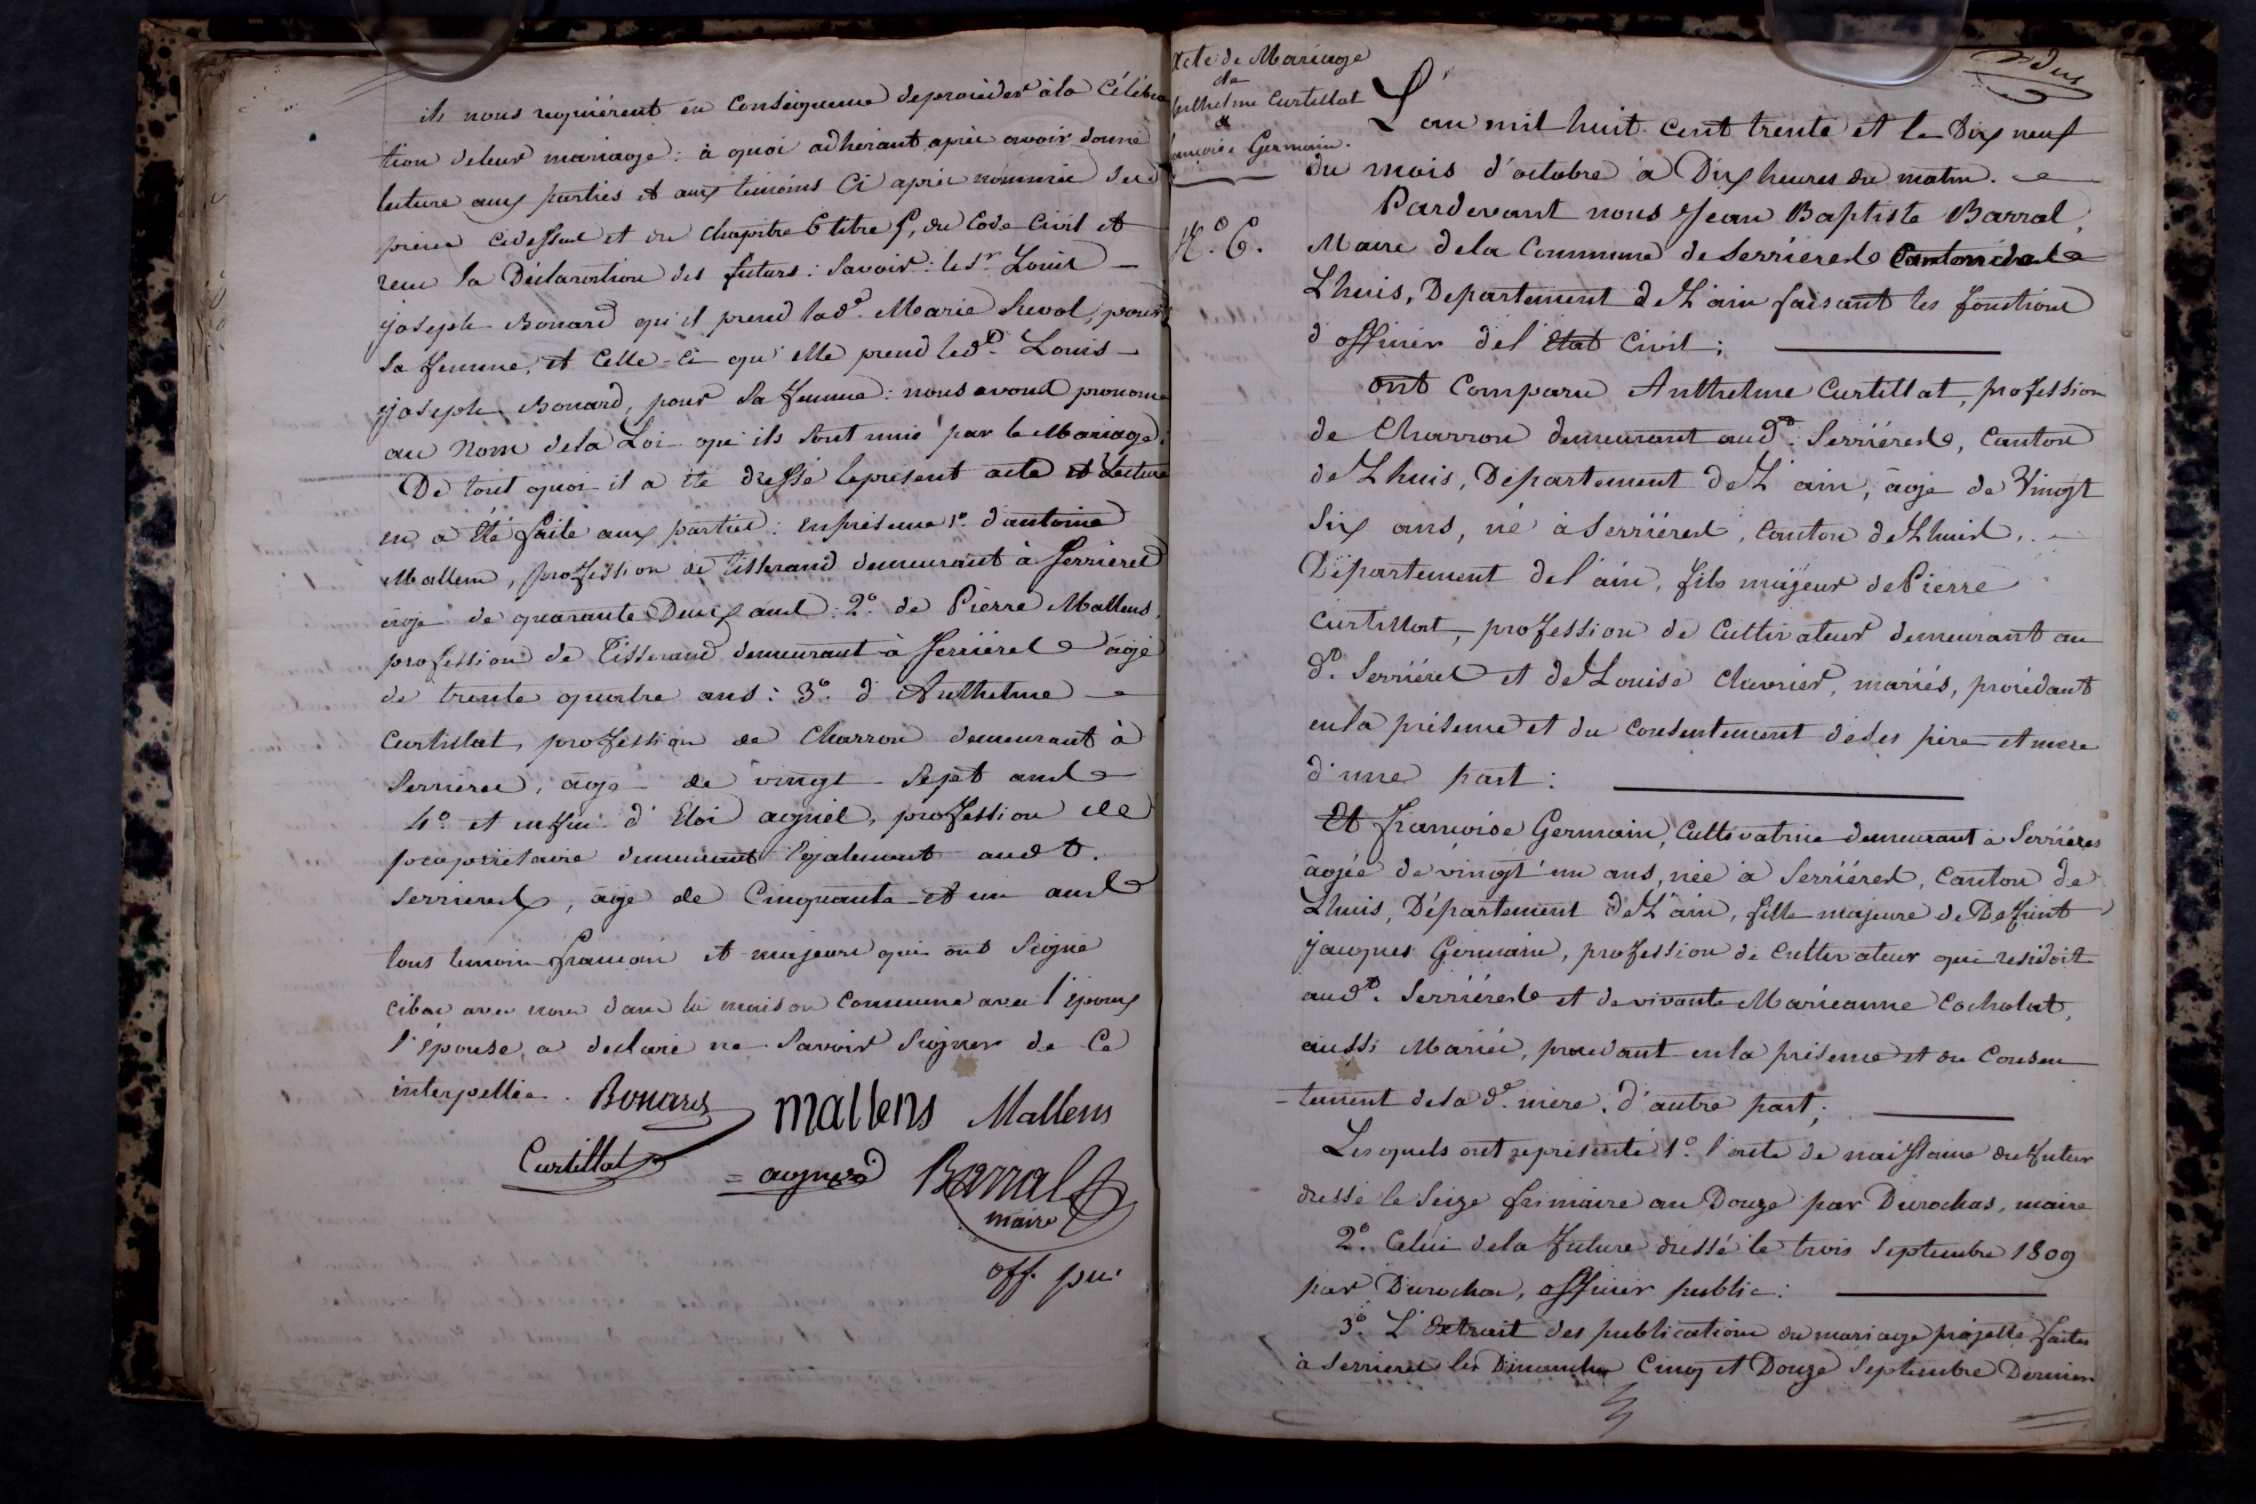 ils nous requiérent en Conséquence de procéder à la Célébra
tion de leur mariage : à quoi adhérant après avoir donné
lecture aux parties et aux témoins Ci après nommés des
pièces Cidessus et du Chapitre 6 titre 5, du Code Civil et
reçu la Déclaration des futurs : Savoir : le Sr. Louis
joseph Bonard qu'il prend lade. Marie pour
Sa femme, et Celle-Ci qu'elle prend led. Louis
joseph Bonard, pour Sa femme : nous avons prononcé
au Nom de la Loi qu'ils Sont unis par le Mariage.
De tout quoi il a été dressé le présent acte et Lecture
en a été faite aux parties : en présence 1º. d'antoine
Mallens, profession de tisserand demeurant à Serrieres
âgé de quarante Deux ans : 2º. de Pierre Mallens,
profession de Tisserand demeurant à Serriéres âgé
de trente quatre ans : 3º. d'Anthelme
Curtillat, profession de Charron demeurant à
Serrieres, âgé de vingt-Sept ans
4º. et enfin d'Eloi profession de
propriétaire demeurant également audt.
Serrieres, âgé de Cinquante et un ans
tous temoins francais et majeurs qui ont Signé
cibas avec nous dans la maison Commune avec l'époux
l'épouse, a déclaré ne Savoir Signer de Ce
interpellée. Bonard mallens Mallens
Curtillat Barral
maire
off. pu.
Acte de Mariage
de
Anthelme Curtillat
&
françoise Germain.
Nº. 6.
L'an mil huit cent trente et le Dix neuf
du mois d'octobre à Dix heures du matin.
Pardevant nous Jean Baptiste Barral,
Maire de la Commune de Serriéres Canton de
Lhuis, Departement de L'ain faisant les fonctions
d'officier de l'Etat Civil ;
ont Comparu Anthelme Curtillat, profession
de Charron demeurant aud. Serriéres, Canton
de Lhuis, Département de L'ain, âgé de Vingt
Six ans, né à Serriéres, Canton de Lhuis,
Département de l'ain, fils majeur de Pierre
Curtillat, profession de Cultivateur demeurant au
d. Serriéres et de Louise Chevrier, mariés, procédant
en la présence et du Consentement de Ses père et mere
d'une part :
Et françoise Germain, Cultivatrice demeurant à Serriéres
âgée de vingt un ans, née à Serriéres, Canton de
Lhuis, Département de L'ain, fille majeure de Defunt
jacques Germain, profession de Cultivateur qui residoit
aud. Serriéres et de vivante Marieanne Cocholat,
aussi Mariés, procédant en la présence et du Consen
-tement de Sa de. mère. d'autre part ;
Lesquels ont représenté 1º. l'acte de naissance du futur
dressé le Seize frimaire an Douze par Durochas, maire
2º. Celui de la future dréssé le trois Septembre 1809
par Durochas, officier public :
3º. L'Extrait des publications du mariage projetté faites
à Serrieres les Dimanches Cinq et Douze Septembre Dernier